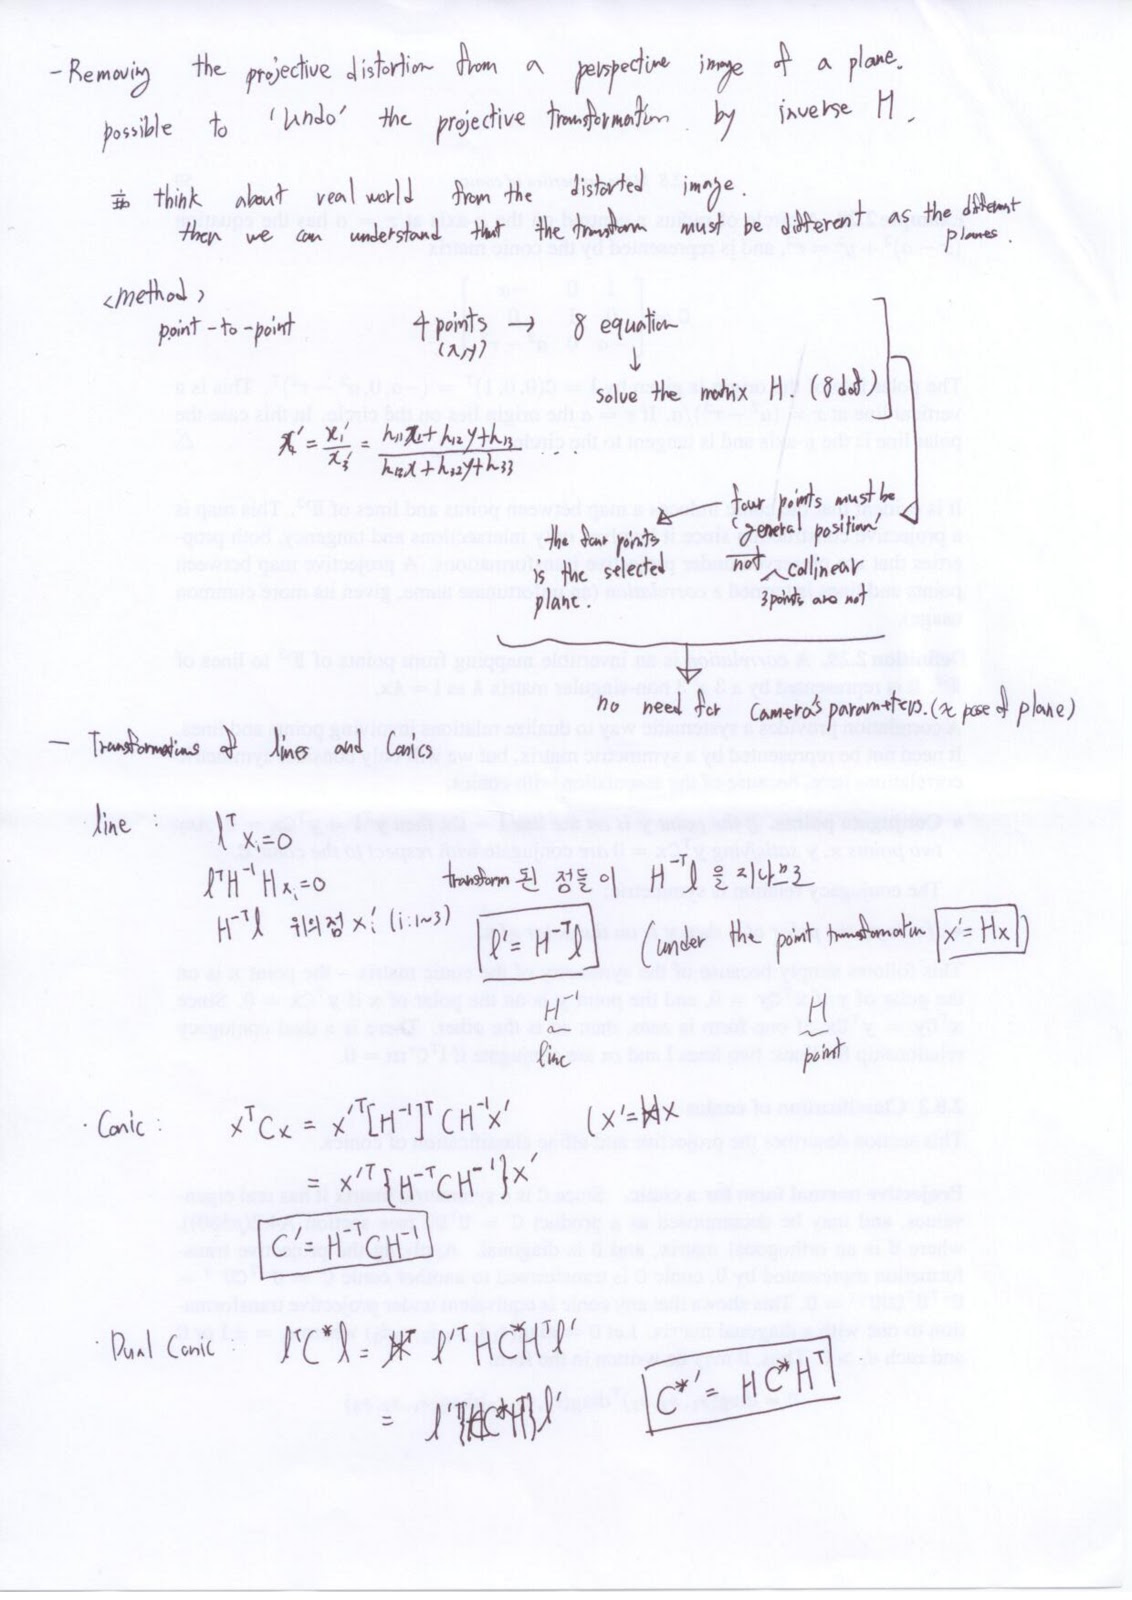 - Removing the projective distortion from a perspective image of a plane.
possible to 'undo' the projective transformation by inverse H.
think about real world from the distorted image.
then we can understand that the transform must be different as the different planes.
<method>
point-to-point 4 points → 8 equation
(x,y) ↓
solve the matrix H. (8 dof)
x' = x₁'/x₃' = (h₁₁x + h₁₂y + h₁₃)/(h₁₂x + h₃₂y + h₃₃) ...
- four points must be
'general position'
the four points
is the selected
plane.
not - collinear
3 points are not
no need for Camera's parameters. (x pose of plane)
- Transformations of lines and Conics
· line : lᵀxᵢ=0
lᵀH⁻¹Hxᵢ=0 transform 된 점들이 H⁻ᵀl 을 지나므로
H⁻ᵀl 위의점 xᵢ' (i:1~3) l' = H⁻ᵀl (under the point transformation x'=Hx)
H⁻¹ H
line point
· Conic : xᵀCx = x'ᵀ[H⁻¹]ᵀCH⁻¹x' (x'=Hx
= x'ᵀ{H⁻ᵀCH⁻¹}x'
C' = H⁻ᵀCH⁻¹
· Dual Conic : lᵀC*l = l'ᵀHC*Hᵀl'
= l'ᵀ{HC*Hᵀ}l' C*' = HC*Hᵀ